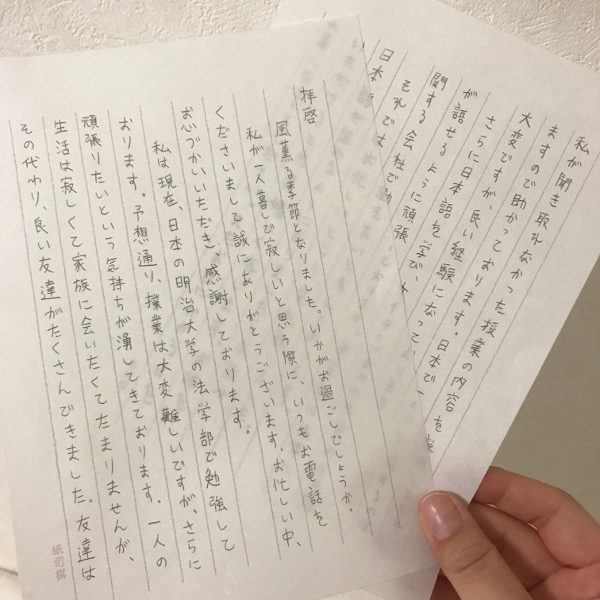 拝啓
風薫る季節となりました。いかがお過ごしでしょうか。
私が一人暮しで寂しいと思う際に、いつもお電話を
くださいまして誠にありがとうございます。お忙しい中、
お心づかいいただき、感謝しております。
私は現在、日本の明治大学の法学部で勉強して
おります。予想通り、授業は大変難しいですが、さらに
頑張りたいという気持ちが湧してきております。一人の
生活は寂しくて家族に会いたくてたまりませんが、
その代わり、良い友達がたくさんできました。友達は
紙司撰
私が聞き取れなかった授業の内容を
ますので助かっております。日本で
大変ですが、良い経験になってい
さらに日本語を学び、
が話せるように頑張
関する会社で
それでは
日本